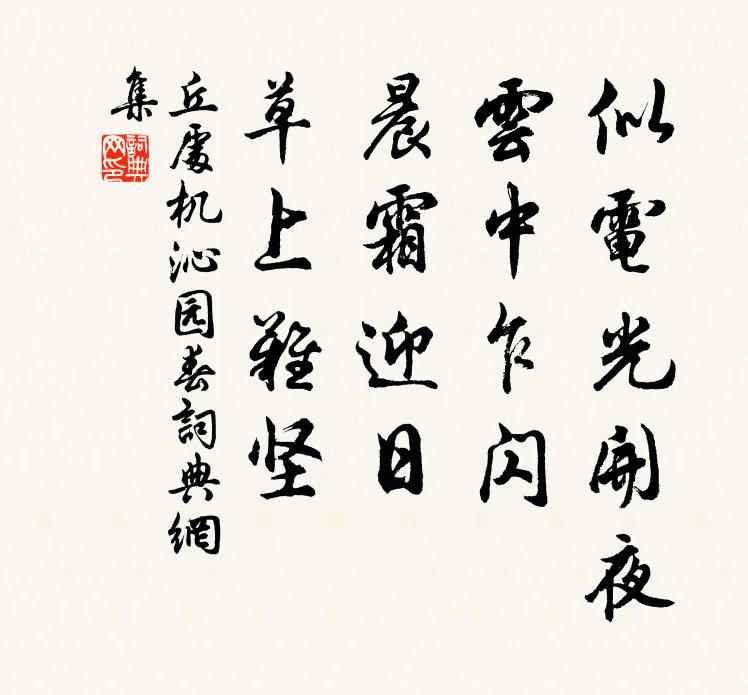 似電光開夜
雲中乍闪
晨霜迎日
草上難坚
丘處机沁园春詞典網
集
詞典
网印